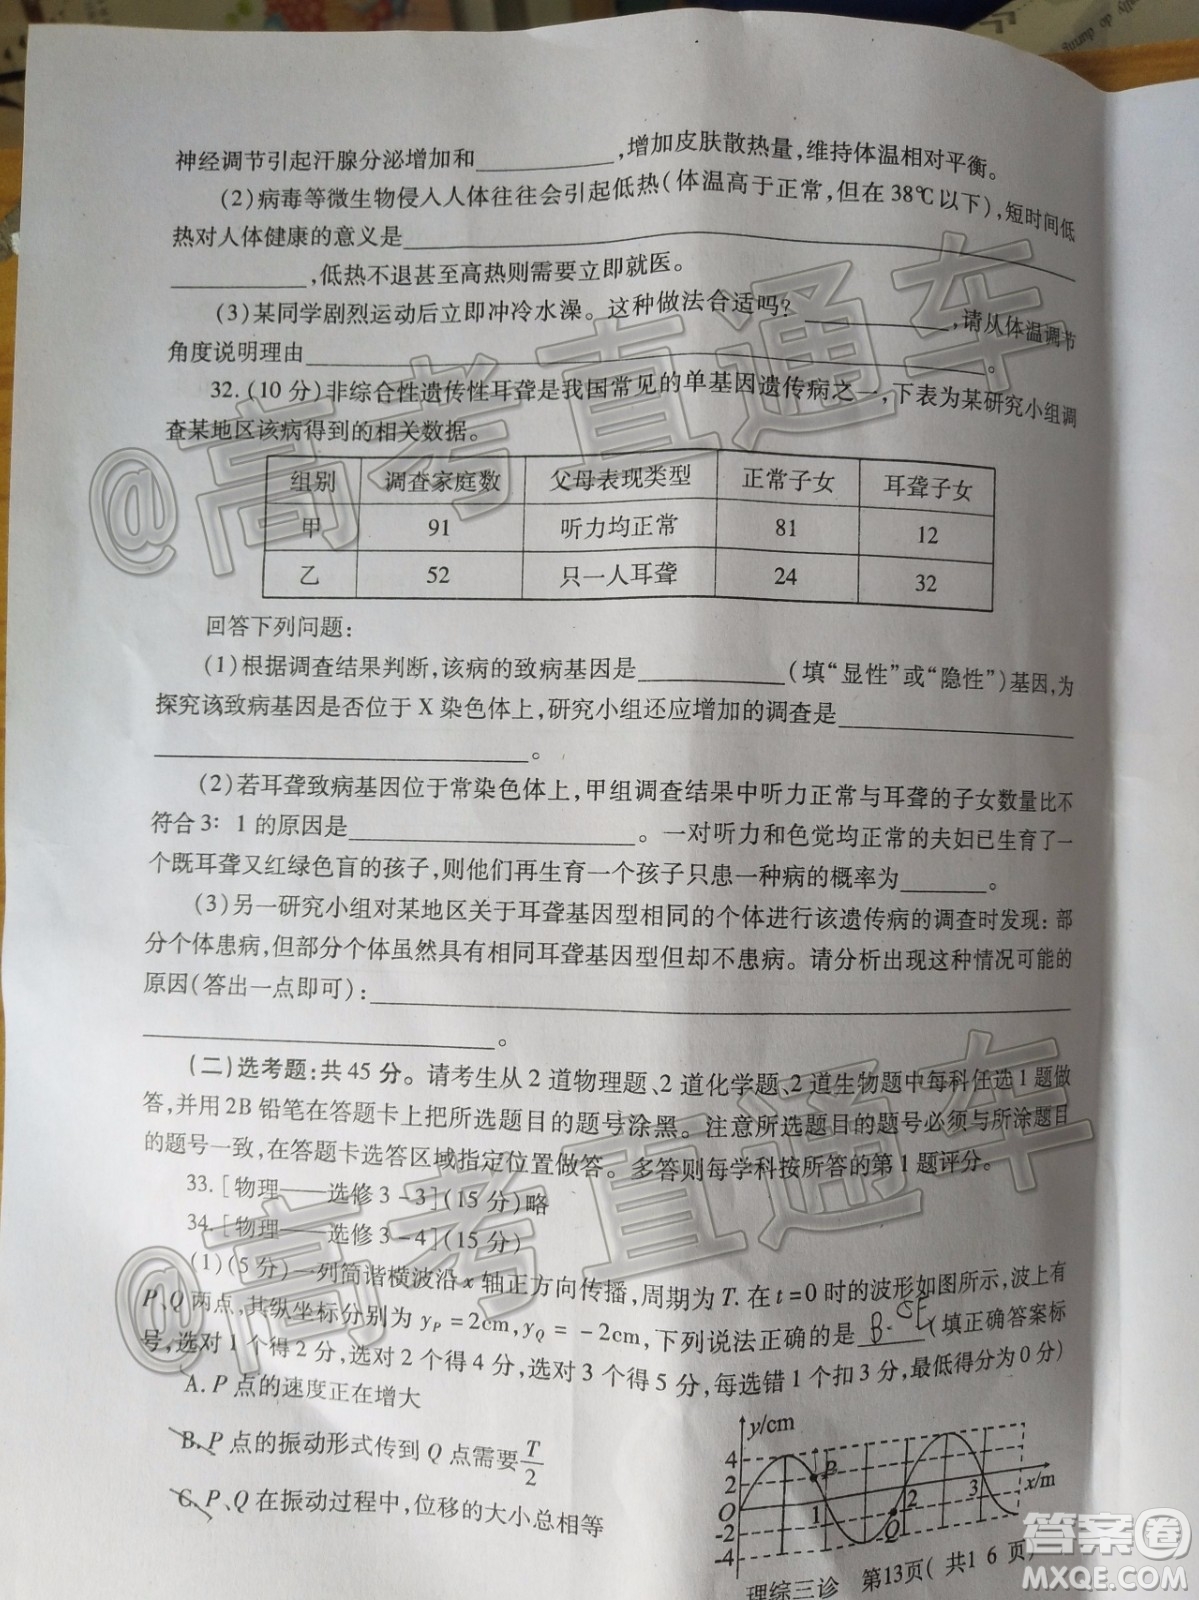 神经调节引起汗腺分泌增加和____________,增加皮肤散热量,维持体温相对平衡。
(2)病毒等微生物侵入人体往往会引起低热(体温高于正常,但在38℃以下),短时间低
热对人体健康的意义是____________
____________,低热不退甚至高热则需要立即就医。
(3)某同学剧烈运动后立即冲冷水澡。这种做法合适吗?____________,请从体温调节
角度说明理由____________。
32.(10分)非综合性遗传性耳聋是我国常见的单基因遗传病之一,下表为某研究小组调
查某地区该病得到的相关数据。
组别 调查家庭数 父母表现类型 正常子女 耳聋子女
甲 91 听力均正常 81 12
乙 52 只一人耳聋 24 32
回答下列问题:
(1)根据调查结果判断,该病的致病基因是____________(填“显性”或“隐性”)基因,为
探究该致病基因是否位于X染色体上,研究小组还应增加的调查是____________
____________。
(2)若耳聋致病基因位于常染色体上,甲组调查结果中听力正常与耳聋的子女数量比不
符合3∶1的原因是____________。一对听力和色觉均正常的夫妇已生育了一
个既耳聋又红绿色盲的孩子,则他们再生育一个孩子只患一种病的概率为______。
(3)另一研究小组对某地区关于耳聋基因型相同的个体进行该遗传病的调查时发现:部
分个体患病,但部分个体虽然具有相同耳聋基因型但却不患病。请分析出现这种情况可能的
原因(答出一点即可):____________
____________。
(二)选考题:共45分。请考生从2道物理题、2道化学题、2道生物题中每科任选1题做
答,并用2B铅笔在答题卡上把所选题目的题号涂黑。注意所选题目的题号必须与所涂题目
的题号一致,在答题卡选答区域指定位置做答。多答则每学科按所答的第1题评分。
33.[物理——选修3-3](15分)略
34.[物理——选修3-4](15分)
(1)(5分)一列简谐横波沿x轴正方向传播,周期为T.在t=0时的波形如图所示,波上有
P、Q两点,其纵坐标分别为yP=2cm,yQ=-2cm,下列说法正确的是 B.CE (填正确答案标
号,选对1个得2分,选对2个得4分,选对3个得5分,每选错1个扣3分,最低得分为0分)
A.P点的速度正在增大
B.P点的振动形式传到Q点需要T/2
C.P、Q在振动过程中,位移的大小总相等
y/cm
4
2
O
-2
-4
P
Q
1
2
3
x/m
理综三诊 第13页(共16页)
@高考直通车
@高考直通车
答案圈
MXQE.COM